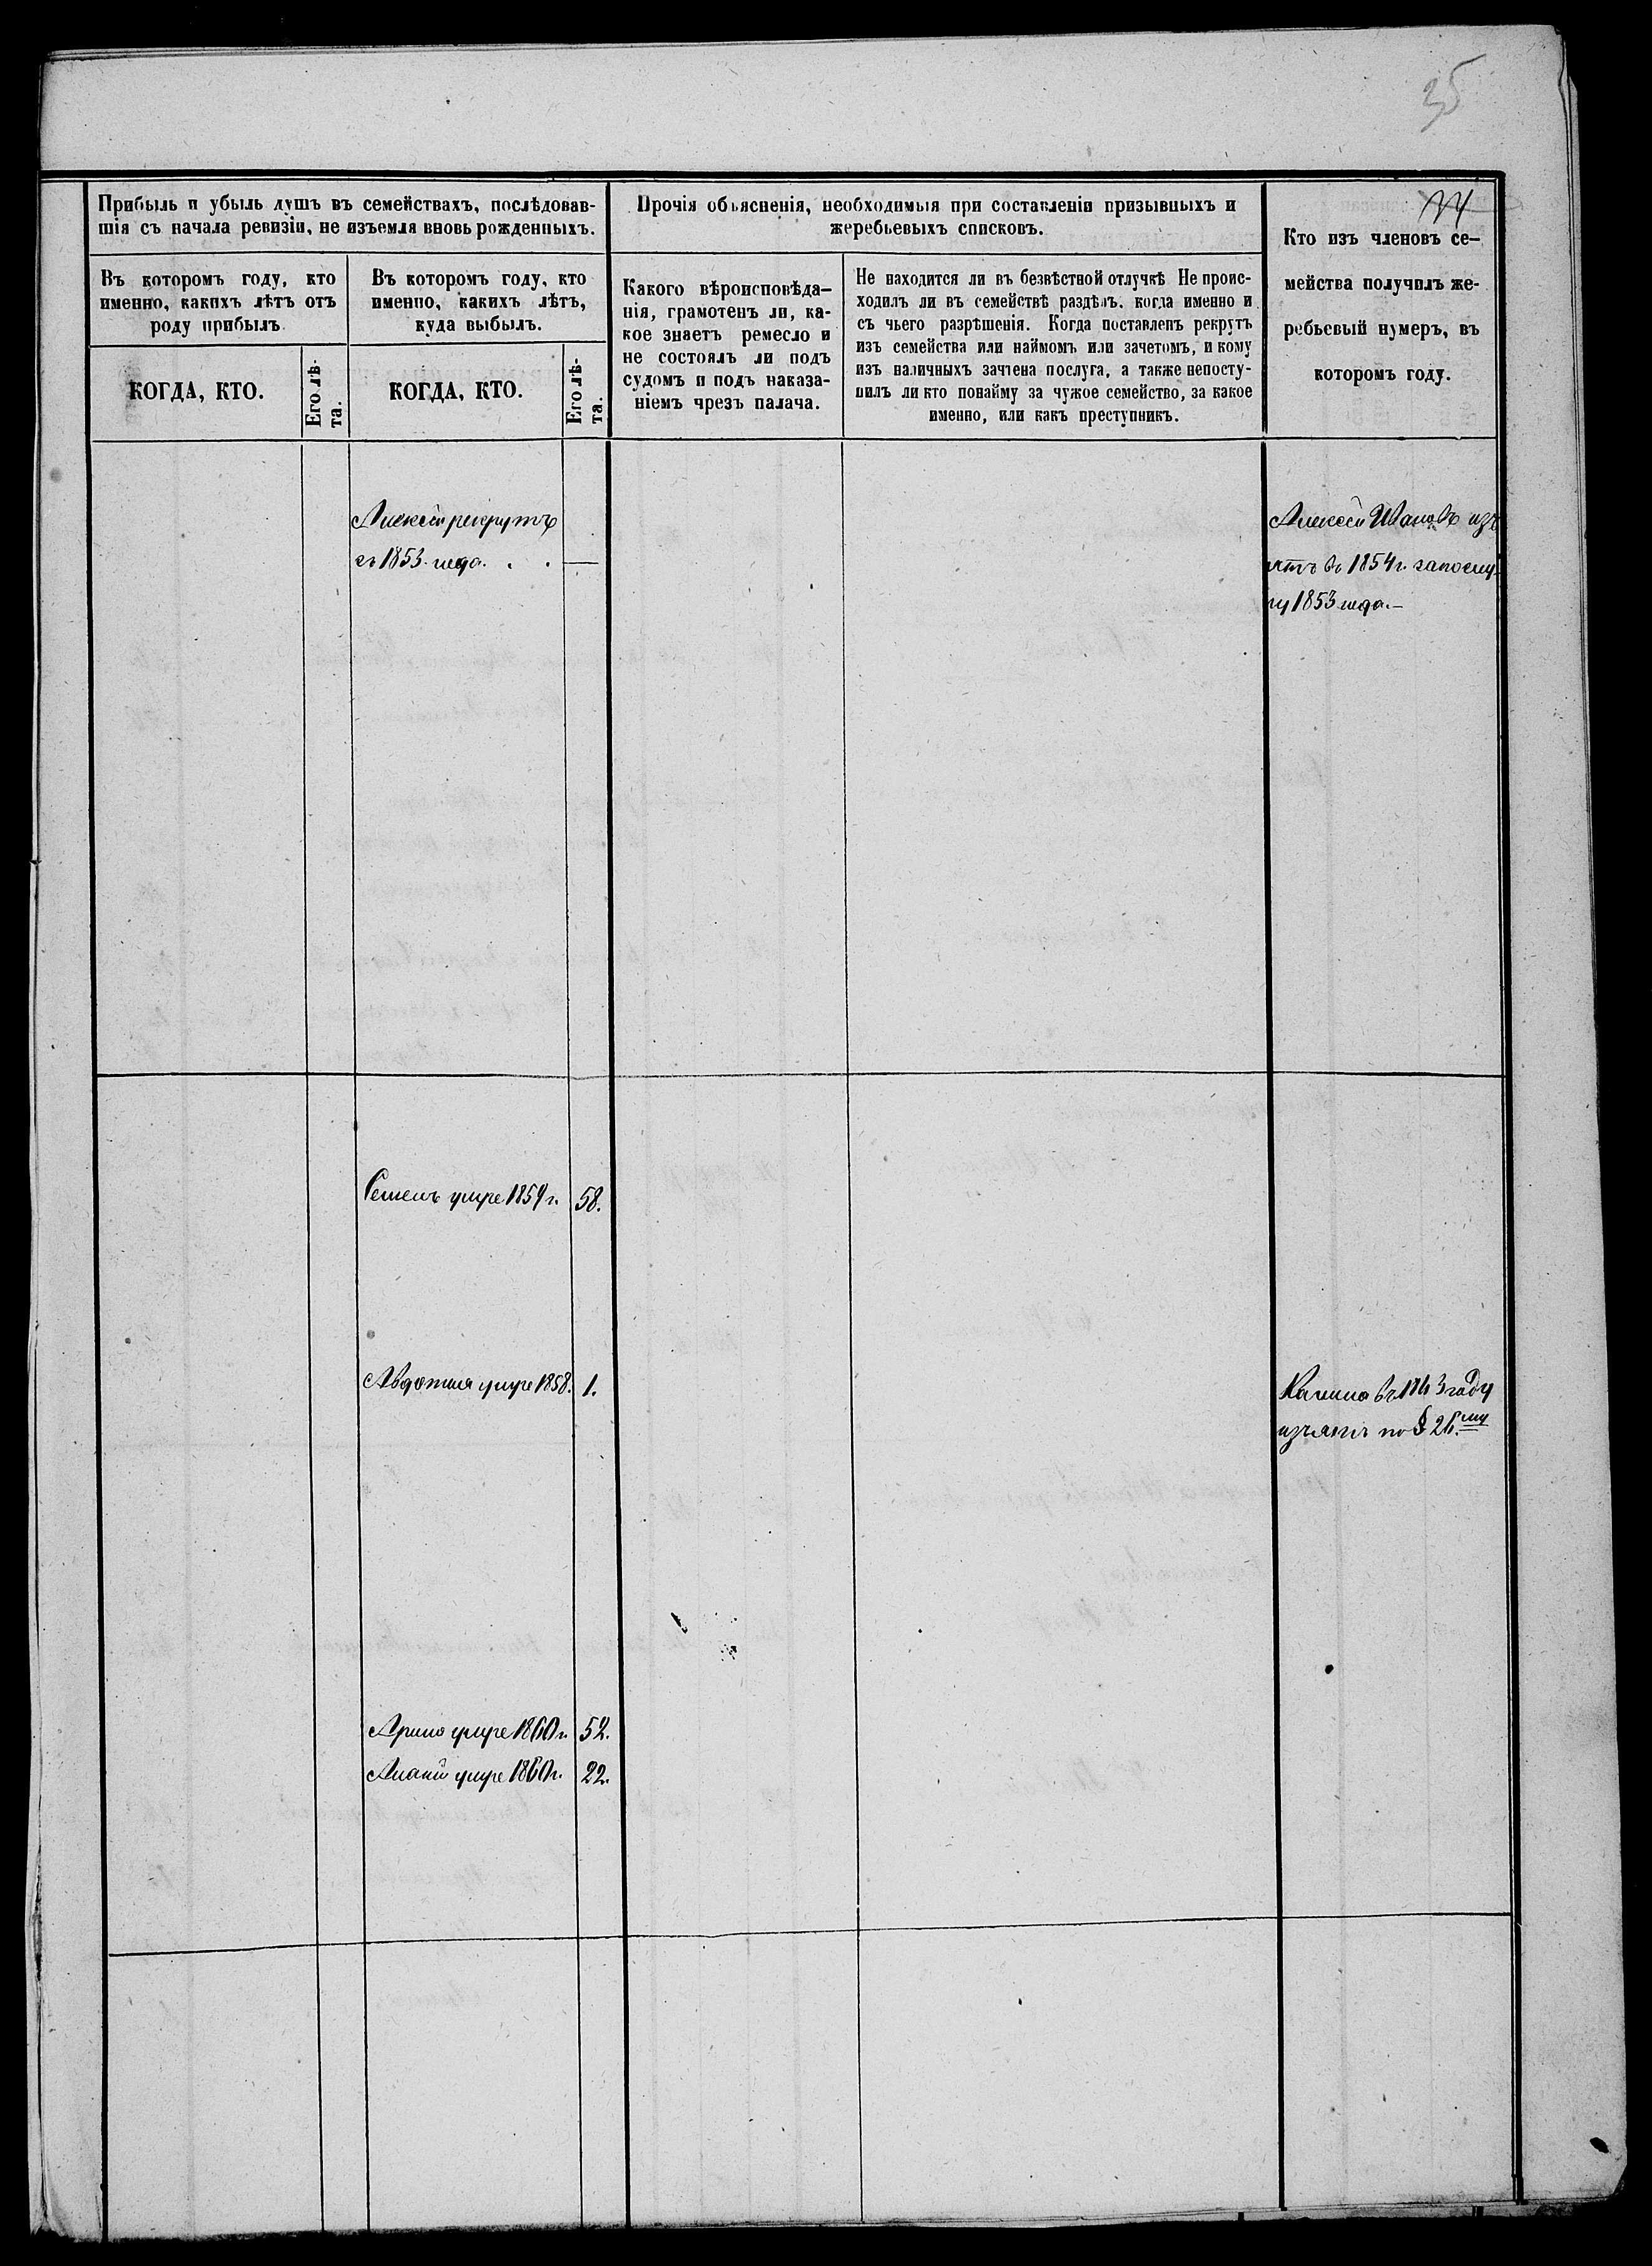 35
34
Прибыль и убыль душъ въ семействахъ, послѣдовав-
шія съ начала ревизіи, не изъемля вновь рожденныхъ.
Въ которомъ году, кто
именно, какихъ лѣтъ отъ
роду прибылъ
КОГДА, КТО.
Его лѣ-
та.
Въ которомъ году, кто
именно, какихъ лѣтъ,
куда выбылъ.
КОГДА, КТО.
Его лѣ-
та.
Прочія объясненія, необходимыя при составленіи призывныхъ и
жеребьевыхъ списковъ.
Какого вѣроисповѣда-
нія, грамотенъ ли, ка-
кое знаетъ ремесло и
не состоялъ ли подъ
судомъ и подъ наказа-
ніемъ чрезъ палача.
Не находится ли въ безвѣстной отлучкѣ Не проис-
ходилъ ли въ семействѣ раздѣлъ. когда именно и
съ чьего разрѣшенія. Когда поставленъ рекрутъ
изъ семейства или наймомъ или зачетомъ, и кому
изъ наличныхъ зачтена послуга, а также непосту-
пилъ ли кто понайму за чужое семейство, за какое
именно, или какъ преступникъ.
Кто изъ членовъ се-
мейства получилъ же-
ребьевый нумеръ, въ
которомъ году.
Алексѣй рекрутъ
съ 1853. года. . . —
Алексѣй Ивановъ изъ
ятъ въ 1854 г. запослу-
гу 1853 года. —
Семенъ умре 1859 г. 58.
Авдотья умре 1858. 1.
въ 1863 году
изъятъ по § 26.му
Арина умре 1860 г. 52.
умре 1860 г. 22.